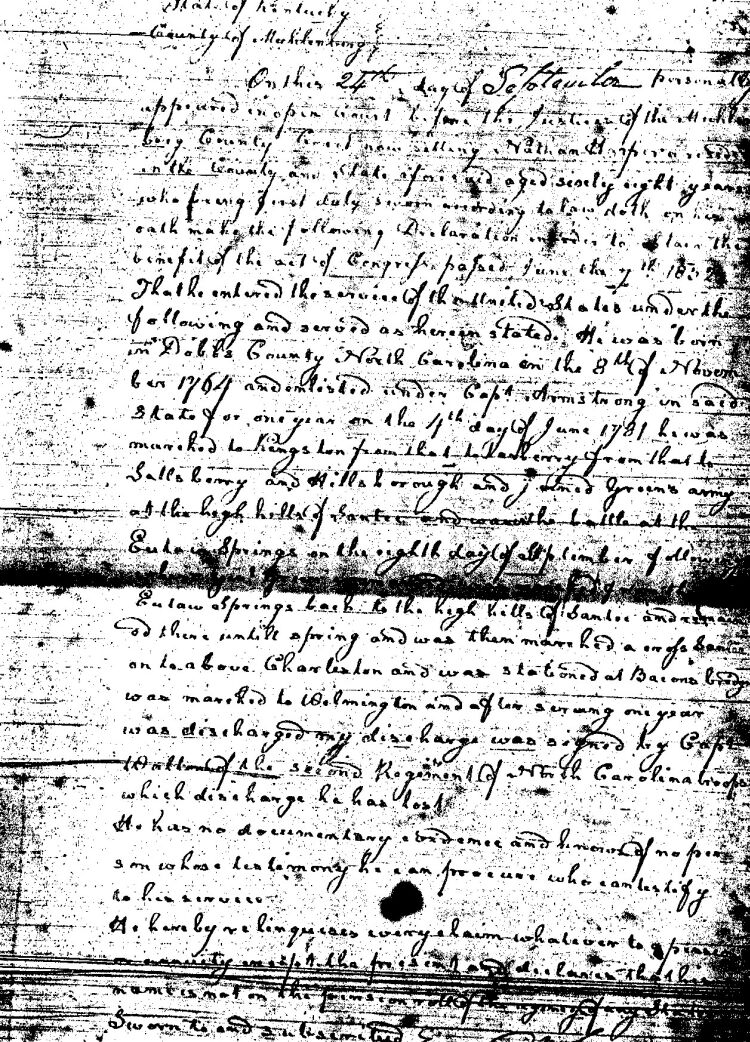 State of Kentucky
County of Muhlenburg
On this 24th day of September personally
appeared in open Court before the Justices of the Muhlen
burg County Court now setting Nathan Harper a reside
in the County and State aforesaid aged sixty eight years
who being first duly sworn according to law doth on his
oath make the following Declaration in order to obtain the
benefit of the act of Congress passed June the 7th 1832
That he entered the service of the United States under the
following and served as herein stated. He was born
in Dobbs County North Carolina on the 8th of Novem
ber 1764 and enlisted under Capt Armstrong in said
State for one year on the 4th day of June 1781 he was
marched to Kingston from that to from that to
Sallsberry and Hillsborough and joined Greens army
at the high hills of Santee and was in the battle at the
Eutaw Springs on the eighth day of September following
Eutaw Springs back to the high hills of Santee and remain
ed there untill spring and was then marched a cross Santee
on to above Charleston and was stationed at Bacons bridge
was marched to Wilmington and after serving one year
was discharged my discharge was signed by Capt
of the second Regement of North Carolina troops
which discharge he has lost
He has no documentary evedence and knows of no per
son whose testimony he can procure who can testify
to his service
He hereby relinquesses every claim whatever to a pension
or annuity except the present and declares that his
name is not on the pension roll of the agency of any State
Sworn to and subscribed